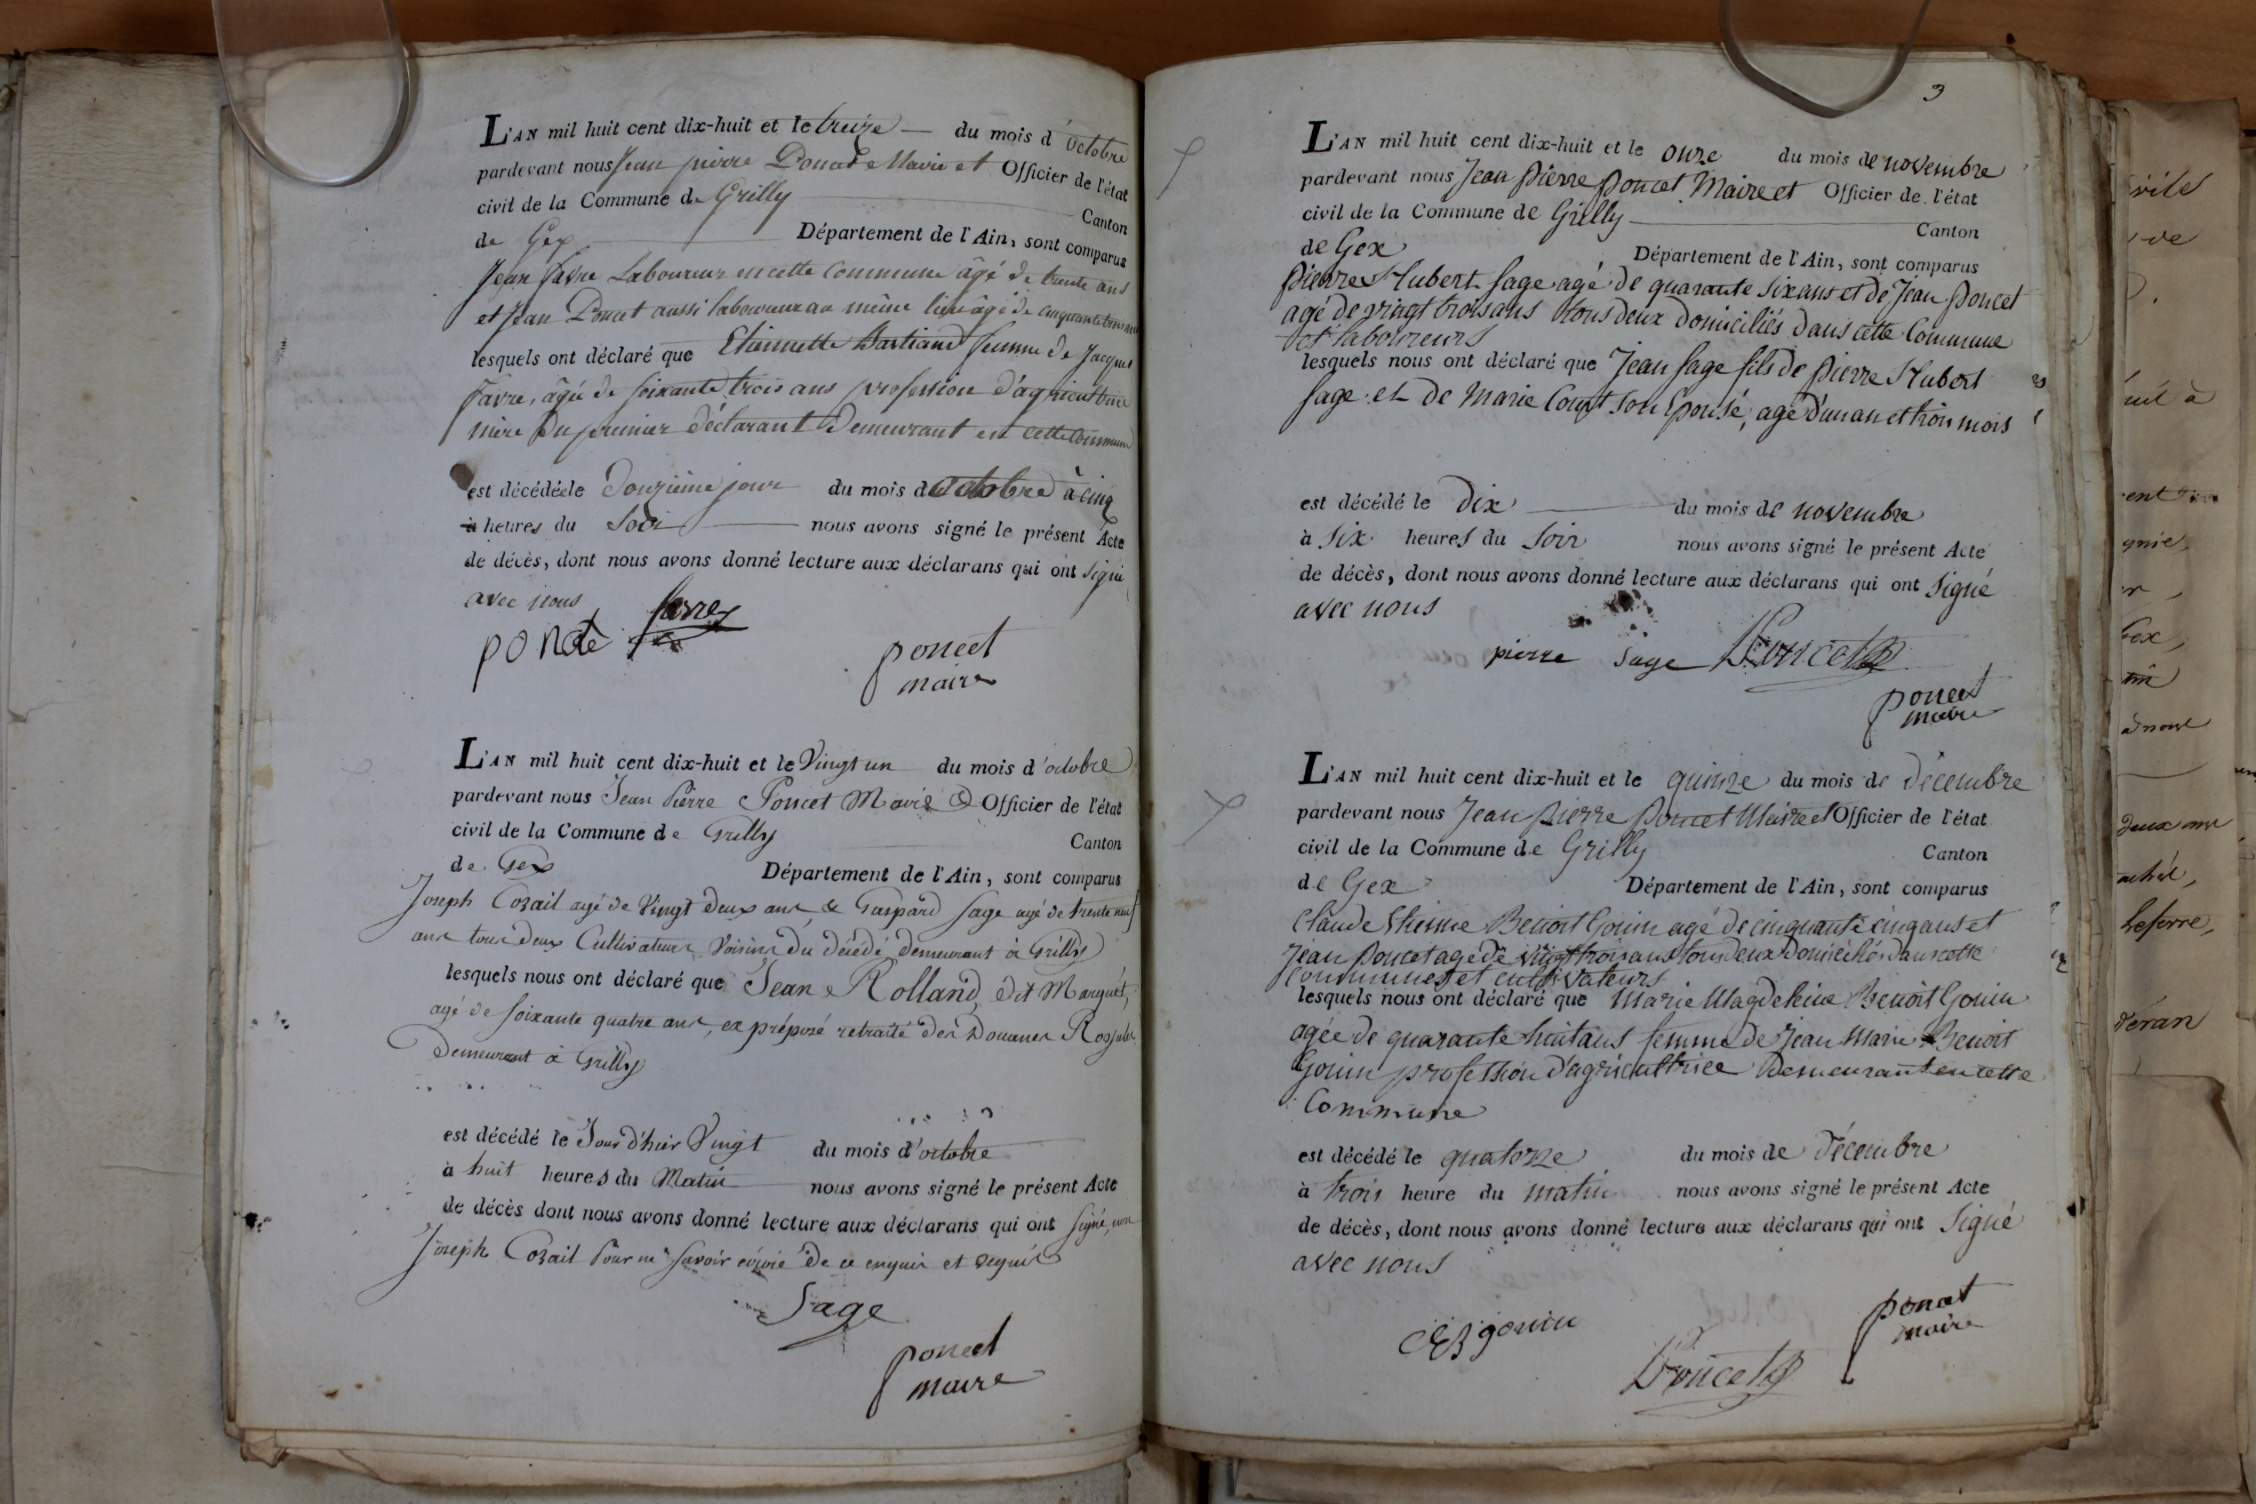 L'AN mil huit cent dix-huit et le treize du mois d'octobre
pardevant nous Jean pierre Poncet Maire et Officier de l'état
civil de la Commune de Grilly Canton
de Gex Département de l'Ain, sont comparus
Jean favre Laboureur en cette commune âgé de trente ans
et Jean Poncet aussi laboureur au même lieu âgé de cinquante trois ans
lesquels ont déclaré que Etiennette Bastiand femme de Jacques
favre, âgée de soixante trois ans profession d'agricultrice
mère du premier déclarant Demeurant en cette commune
est décédée le Douzième jour du mois d'octobre à cinq
à heures du Soir nous avons signé le présent Acte
de décès, dont nous avons donné lecture aux déclarans qui ont signé
avec nous
favre
poncet
maire
L'AN mil huit cent dix-huit et le Vingt un du mois d'octobre
pardevant nous Jean Pierre Poncet Maire & Officier de l'état
civil de la Commune de Grilly Canton
de Gex Département de l'Ain, sont comparus
Joseph Cozail agé de Vingt deux ans & Gaspard Sage agé de trente neuf
ans tous deux Cultivateurs Voisins du décédé demeurant à Grilly
lesquels nous ont déclaré que Jean Rolland, dit Marquet,
agé de soixante quatre ans, ex préposé retraité des Douanes
Demeurant à Grilly
est décédé le Jour d'hier Vingt du mois d'octobre
à huit heures du Matin nous avons signé le présent Acte
de décès dont nous avons donné lecture aux déclarans qui ont signé, non
Joseph Cozail Pour ne savoir écrire de ce enquis et requis
Sage
poncet
maire
3
L'AN mil huit cent dix-huit et le onze du mois de novembre
pardevant nous Jean pierre poncet Maire et Officier de l'état
civil de la Commune de Grilly Canton
de Gex Département de l'Ain, sont comparus
pierre Hubert Sage agé de quarante six ans et de Jean poncet
agé de vingt trois ans tous deux domiciliés dans cette Commune
et laboureurs
lesquels nous ont déclaré que Jean Sage fils de pierre Hubert
Sage et de Marie Court son Epouse, agé d'un an et trois mois
est décédé le dix du mois de novembre
à six heures du soir nous avons signé le présent Acte
de décès, dont nous avons donné lecture aux déclarans qui ont signé
avec nous
pierre Sage Poncet
poncet
maire
L'AN mil huit cent dix-huit et le quinze du mois de décembre
pardevant nous Jean pierre poncet Maire et Officier de l'état
civil de la Commune de Grilly Canton
de Gex Département de l'Ain, sont comparus
Claude Etienne Benoit Gonin agé de cinquante cinq ans et
Jean poncet agé de vingt trois ans tous deux domiciliés dans cette
commune et cultivateurs
lesquels nous ont déclaré que Marie Magdeleine Benoit Gonin
agée de quarante huit ans femme de Jean Marie Benoit
Gonin profession d'agricultrice Demeurant en cette
Commune
est décédé le quatorze du mois de décembre
à trois heure du matin nous avons signé le présent Acte
de décès, dont nous avons donné lecture aux déclarans qui ont signé
avec nous
gonin
Poncet
poncet
maire